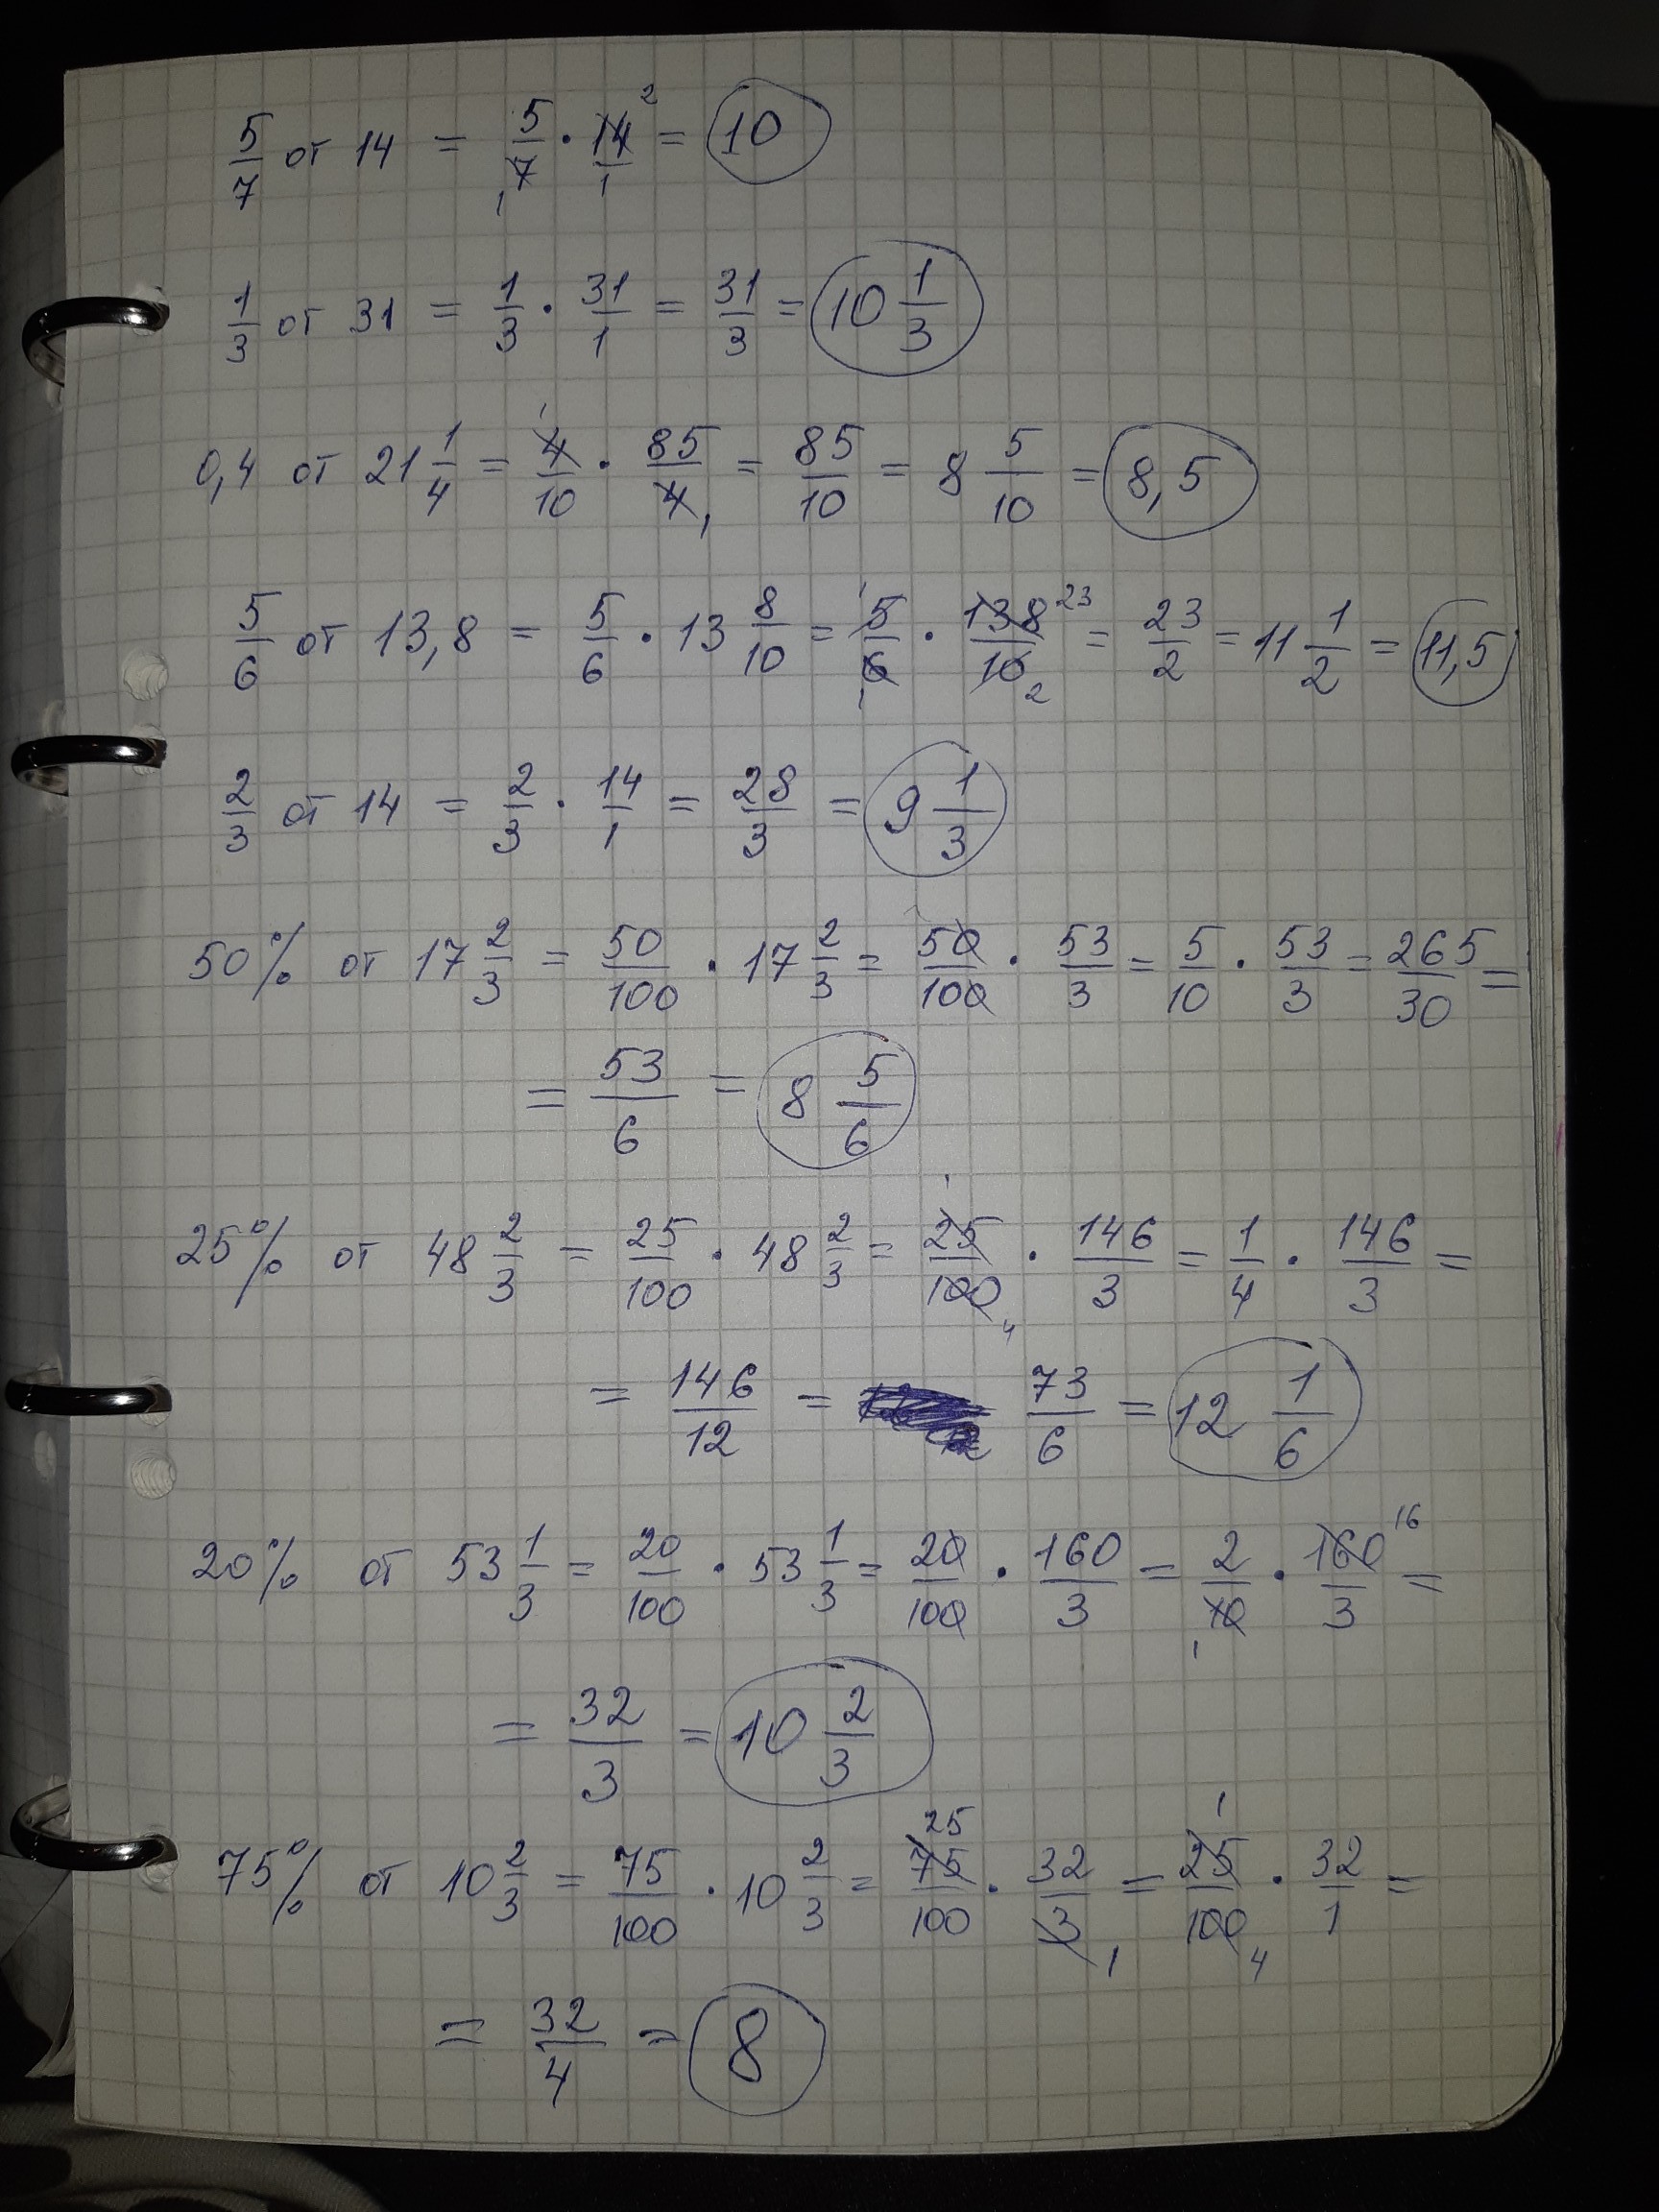 5/7 от 14 = 5/7 · 14/1 = 10
1/3 от 31 = 1/3 · 31/1 = 31/3 = 10 1/3
0,4 от 21 1/4 = 4/10 · 85/4 = 85/10 = 8 5/10 = 8,5
5/6 от 13,8 = 5/6 · 13 8/10 = 5/6 · 138/10 = 23/2 = 11 1/2 = 11,5
2/3 от 14 = 2/3 · 14/1 = 28/3 = 9 1/3
50% от 17 2/3 = 50/100 · 17 2/3 = 50/100 · 53/3 = 5/10 · 53/3 = 265/30 =
= 53/6 = 8 5/6
25% от 48 2/3 = 25/100 · 48 2/3 = 25/100 · 146/3 = 1/4 · 146/3 =
= 146/12 = 73/6 = 12 1/6
20% от 53 1/3 = 20/100 · 53 1/3 = 20/100 · 160/3 = 2/10 · 160/3 =
= 32/3 = 10 2/3
75% от 10 2/3 = 75/100 · 10 2/3 = 75/100 · 32/3 = 25/100 · 32/1 =
= 32/4 = 8